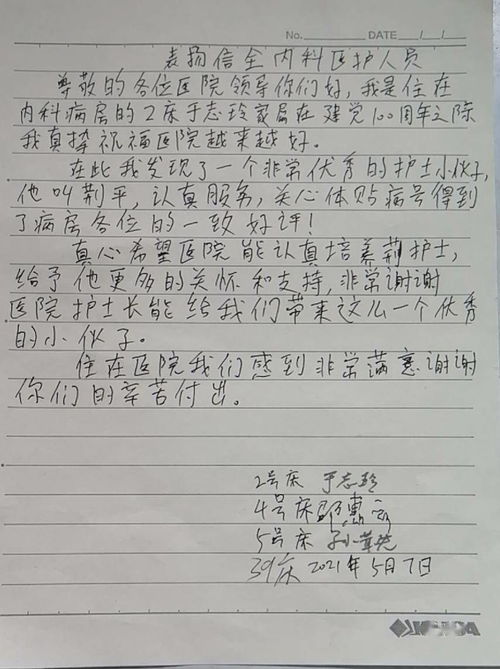 No. DATE / /
表扬信全内科医护人员
尊敬的各位医院领导你们好,我是住在
内科病房的2床于志玲家属在建党100周年之际
我真挚祝福医院越来越好。
在此我发现了一个非常优秀的护士小伙子,
他叫荆平,认真服务,关心体贴病号得到
了病房各位的一致好评!
真心希望医院能认真培养荆护士,
给予他更多的关怀和支持,非常谢谢
医院护士长能给我们带来这么一个优秀
的小伙子。
住在医院我们感到非常满意谢谢
你们的辛苦付出。
2号床 于志玲
4号床
5号床
39床 2021年5月7日